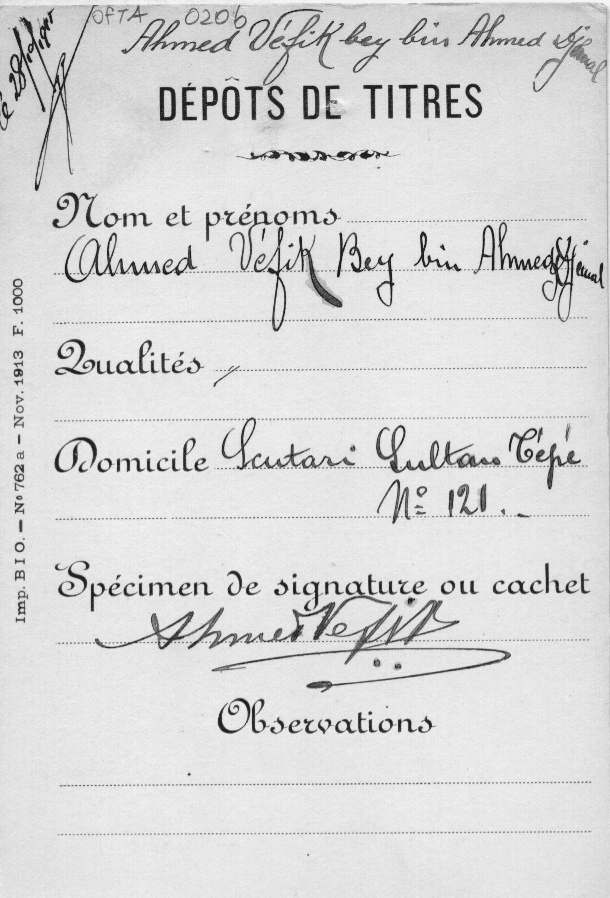 OFTA 0206
Ahmed Véfik bey bin Ahmed Djémal
DÉPÔTS DE TITRES
Nom et prénoms
Ahmed Véfik Bey bin Ahmed Djémal
Qualités „
Domicile Scutari Sultan Tépé
Nº 121.
Spécimen de signature ou cachet
Ahmed Vefik
Observations
Imp. BIO. — Nº 762 a — Nov. 1913 F. 1000